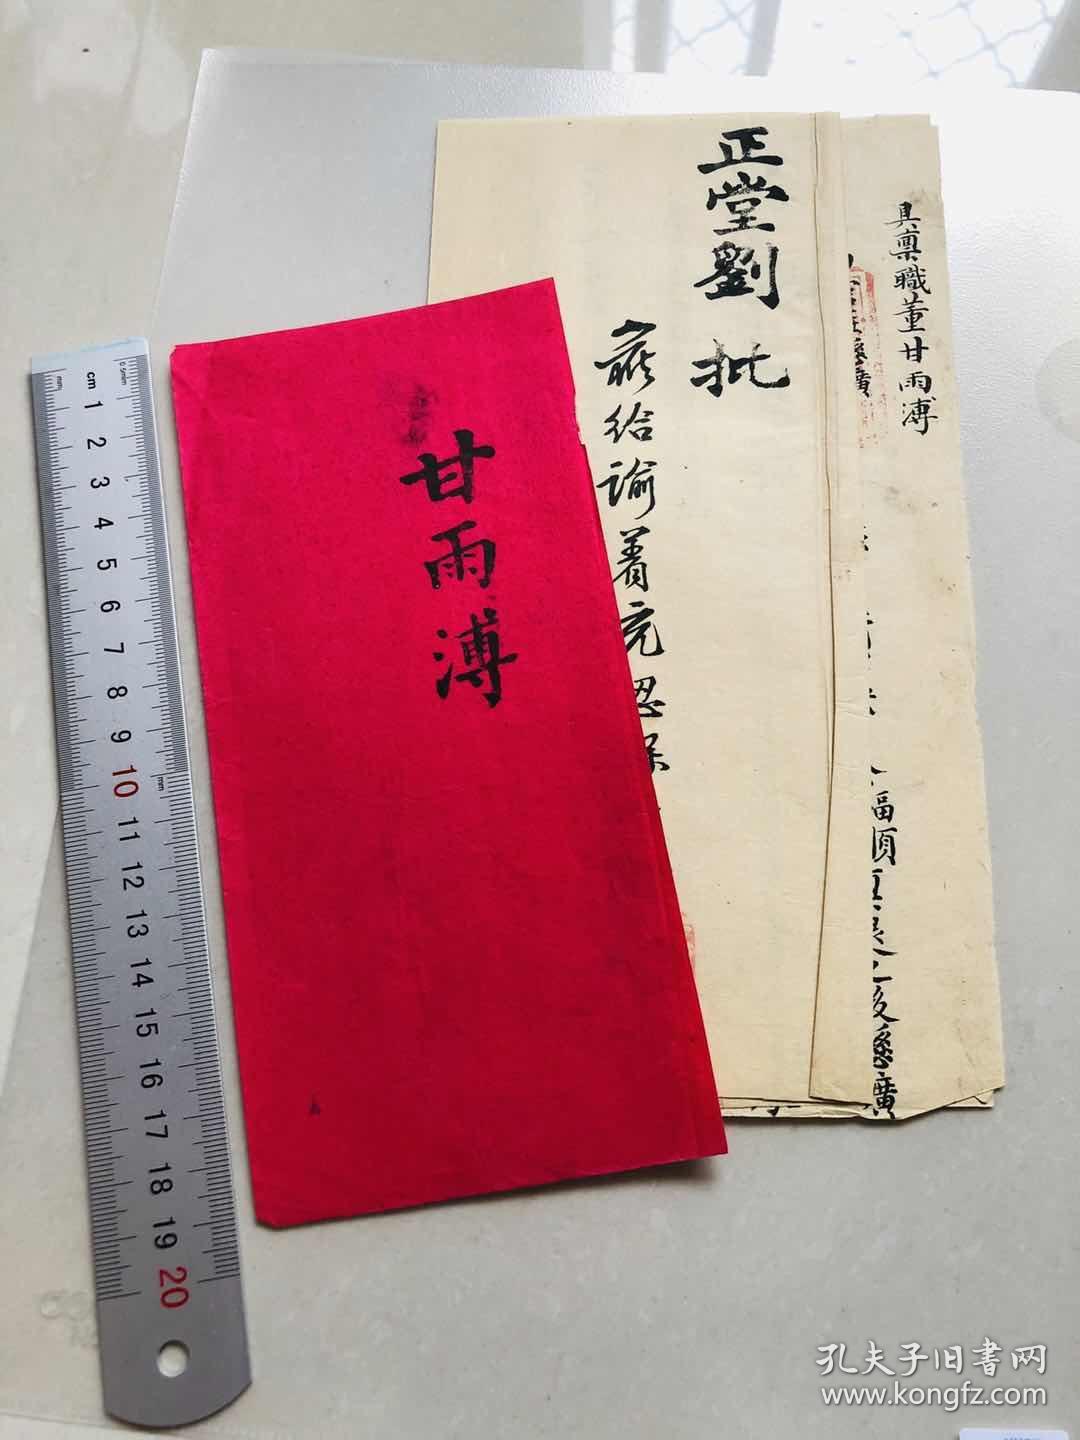 具稟職董甘雨溥
福順
後孫廣
孫廣
正堂劉 批
給諭着充認保
甘雨溥
mm
cm
0.5mm
1
2
3
4
5
6
7
8
9
10
mm
11
12
13
14
15
16
17
18
19
20
孔夫子旧書网
www.kongfz.com